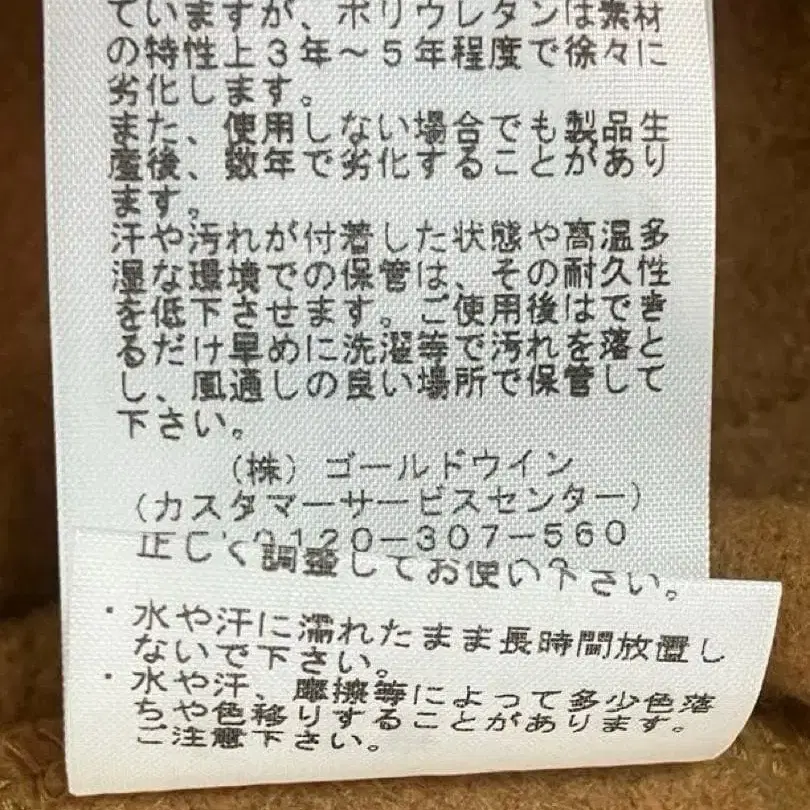 ていますが、ポリウレタンは素材
の特性上3年～5年程度で徐々に
劣化します。
また、使用しない場合でも製品生
産後、数年で劣化することがあり
ます。
汗や汚れが付着した状態や高温多
湿な環境での保管は、その耐久性
を低下させます。ご使用後はでき
るだけ早めに洗濯等で汚れを落と
し、風通しの良い場所で保管して
下さい。
(株)ゴールドウイン
(カスタマーサービスセンター)
0120-307-560
正しく調整してお使い下さい。
・水や汗に濡れたまま長時間放置し
ないで下さい。
・水や汗、摩擦等によって多少色落
ちや色移りすることがあります。
ご注意下さい。